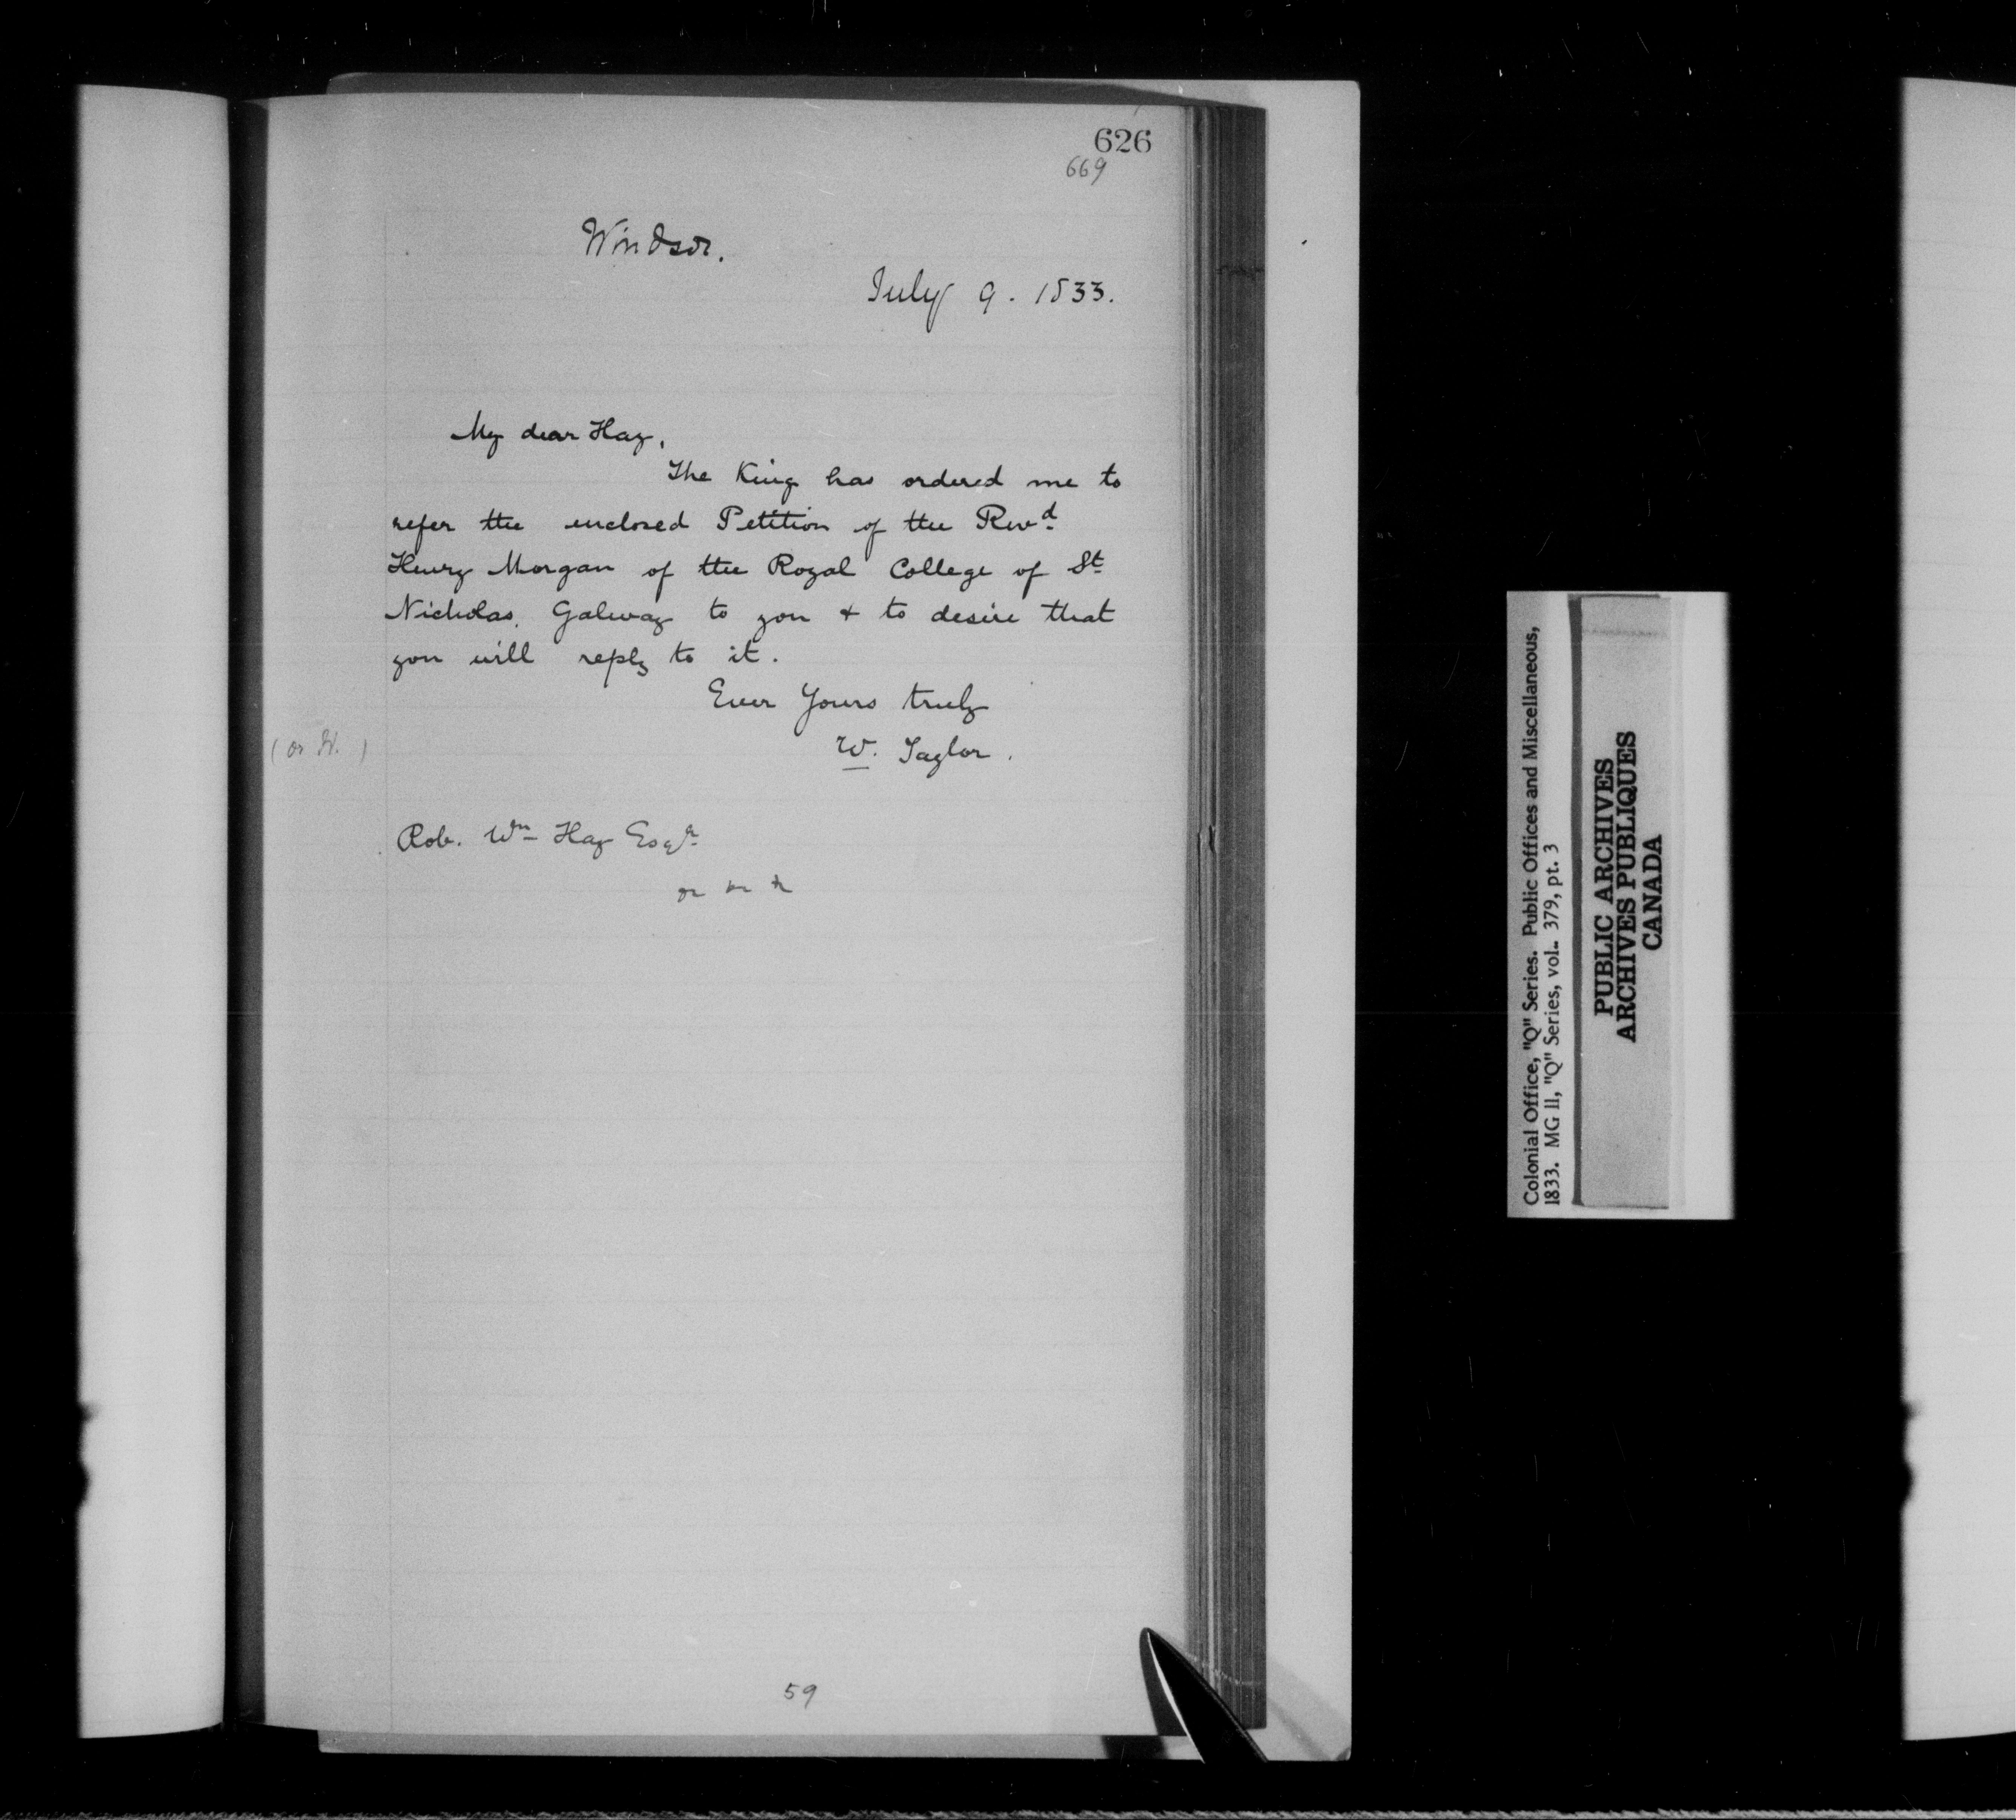 626
669
Windsor.
July 9. 1833.
My dear Hay,
The King has ordered me to
refer the enclosed Petition of the Revd
Henry Morgan of the Royal College of St
Nicholas, Galway to you & to desire that
you will reply to it.
Ever Yours truly
(or H.) W. Taylor.
Rob. Wm Hay Esqr
59
Colonial Office, "Q" Series. Public Offices and Miscellaneous,
1833. MG 11, "Q" Series, vol. 379, pt. 3
PUBLIC ARCHIVES
ARCHIVES PUBLIQUES
CANADA